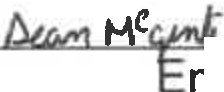 Dean McGinti
Er